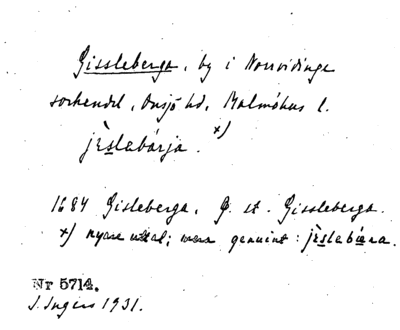 Gissleberga, by i Norrvidinge
sockendel, Onsjö hd, Malmöhus l.
jèslabárja. x)
1684 Gisleberga, G. st. Gissleberga.
x) nyare uttal; mera genuint: jèslabæra.
Nr 5714.
J. Ingers 1931.